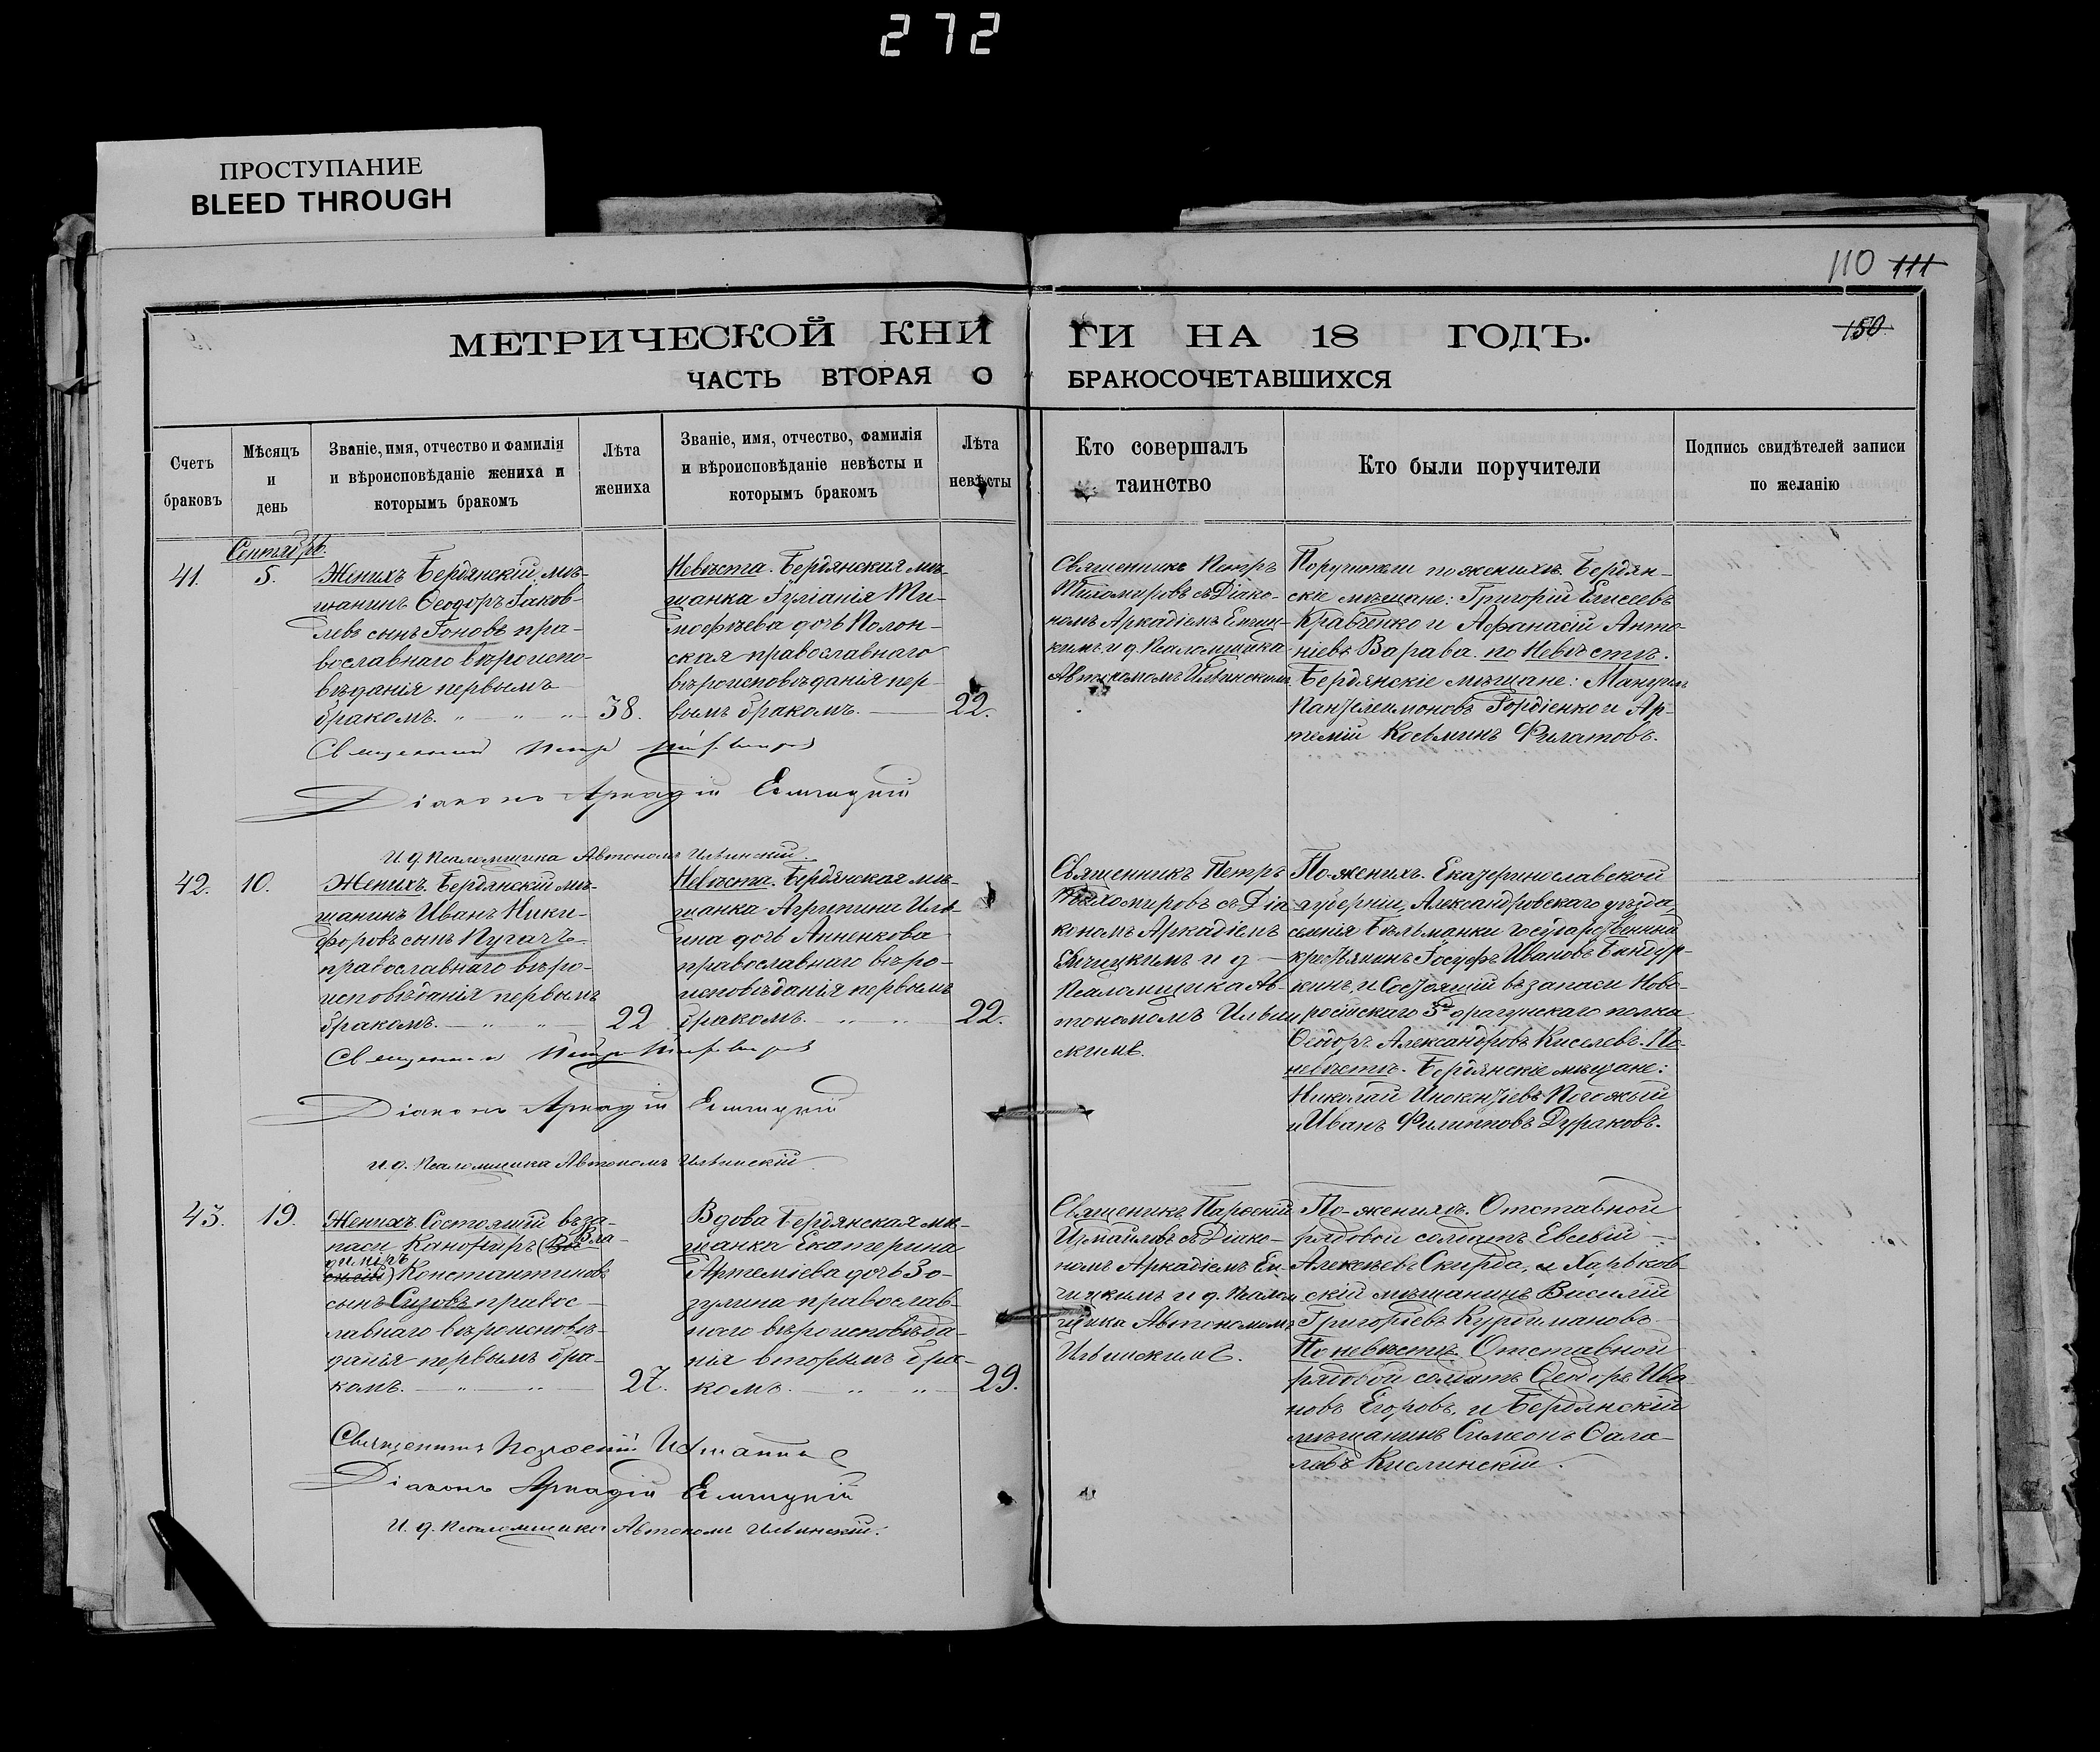 272
ПРОСТУПАНИЕ
BLEED THROUGH
110 111
150
МЕТРИЧЕСКОЙ КНИГИ НА 18 ГОДЪ.
ЧАСТЬ ВТОРАЯ О БРАКОСОЧЕТАВШИХСЯ
Счетъ
браковъ
Мѣсяцъ
и
день
Званіе, имя, отчество и фамилія
и вѣроисповѣданіе жениха и
которымъ бракомъ
Лѣта
жениха
Званіе, имя, отчество, фамилія
и вѣроисповѣданіе невѣсты и
которымъ бракомъ
Лѣта
невѣсты
Кто совершалъ
таинство
Кто были поручители
Подпись свидѣтелей записи
по желанію
Сентябрь.
41.
5.
Женихъ Бердянскій мѣ-
щанинъ Ѳеодоръ Іаков-
левъ сынъ Гоновъ пра-
вославнаго вѣроиспо-
вѣданія первымъ
бракомъ.
38.
Невѣста. Бердянская мѣ-
щанка Іуліанія Ти-
моѳѣева дочь Полон-
ская православнаго
вѣроисповѣданія пер-
вымъ бракомъ.
22.
Священникъ Петръ
Тихомировъ съ Діако-
номъ Аркадіемъ Емчиц-
кимъ и д. Псаломщика
Автономомъ Ильинскимъ.
Поручители по женихѣ. Бердян-
скіе мѣщане: Григорій Елисеевъ
Кравченко и Аѳанасій Анто-
ніевъ Варава. по Невѣстѣ.
Бердянскіе мѣщане: Мануилъ
Пантелеимоновъ Гордіенко и Ар-
темій Косьминъ Филатовъ.
Священникъ Петръ Тихомировъ
Діаконъ Аркадій Емчицкій
И. д. Псаломщика Автономъ Ильинскій.
42.
10.
Женихъ. Бердянскій мѣ-
щанинъ Иванъ Ники-
форовъ сынъ Пугачъ
православнаго вѣро-
исповѣданія первымъ
бракомъ.
22
Невѣста. Бердянская мѣ-
щанка Агрипина Иль-
ина дочь Анненкова
православнаго вѣро-
исповѣданія первымъ
бракомъ.
22.
Священникъ Петръ
Тихомировъ съ Діа-
кономъ Аркадіемъ
Емчицкимъ и д
Псаломщика Ав-
тономомъ Ильин
скимъ.
По женихѣ. Екатеринославской
губерніи, Александровскаго уѣзда,
селенія Бѣльманки государственный
крестьянинъ Іосифъ Ивановъ Бандур-
кинъ, и Состоящій въ запасѣ Ново-
російскаго 3го драгунскаго полка
Ѳедоръ Александровъ Киселевъ. По
невѣстѣ. Бердянскіе мѣщане:
Николай Инокентіевъ Погожый
и Иванъ Филиповъ Дураковъ.
Священникъ Петръ Тихомировъ
Діаконъ Аркадій Емчицкій
и. д. Псаломщика Автономъ Ильинскій
43.
19.
Женихъ. Состоящій въ за-
пасѣ Канониръ (Вла-
диміръ) Константиновъ
сынъ Сизовъ правос-
лавнаго вѣроисповѣ-
данія первымъ бра-
комъ.
27.
Вдова Бердянская мѣ-
щанка Екатерина
Артеміева дочь Зо-
зулина православ-
наго вѣроисповѣда-
нія вторымъ бра-
комъ.
29.
Священникъ Парѳеній
Измаиловъ съ Діако-
номъ Аркадіемъ Ем-
чицкимъ и д. Псалом
щика Автономомъ
Ильинскимъ.
По женихѣ. Отставной
рядовой солдатъ Евсевій
Алексѣевъ Скирда, и Харьков-
скій мѣщанинъ Василій
Григоріевъ Курдимановъ.
По невѣстѣ. Отставной
рядовой солдатъ Ѳедоръ Ива
новъ Егоровъ, и Бердянскій
мѣщанинъ Симеонъ
Кислинскій.
Священникъ Парѳеній Измаиловъ
Діаконъ Аркадій Емчицкій
И. д. Псаломщика Автономъ Ильинскій.